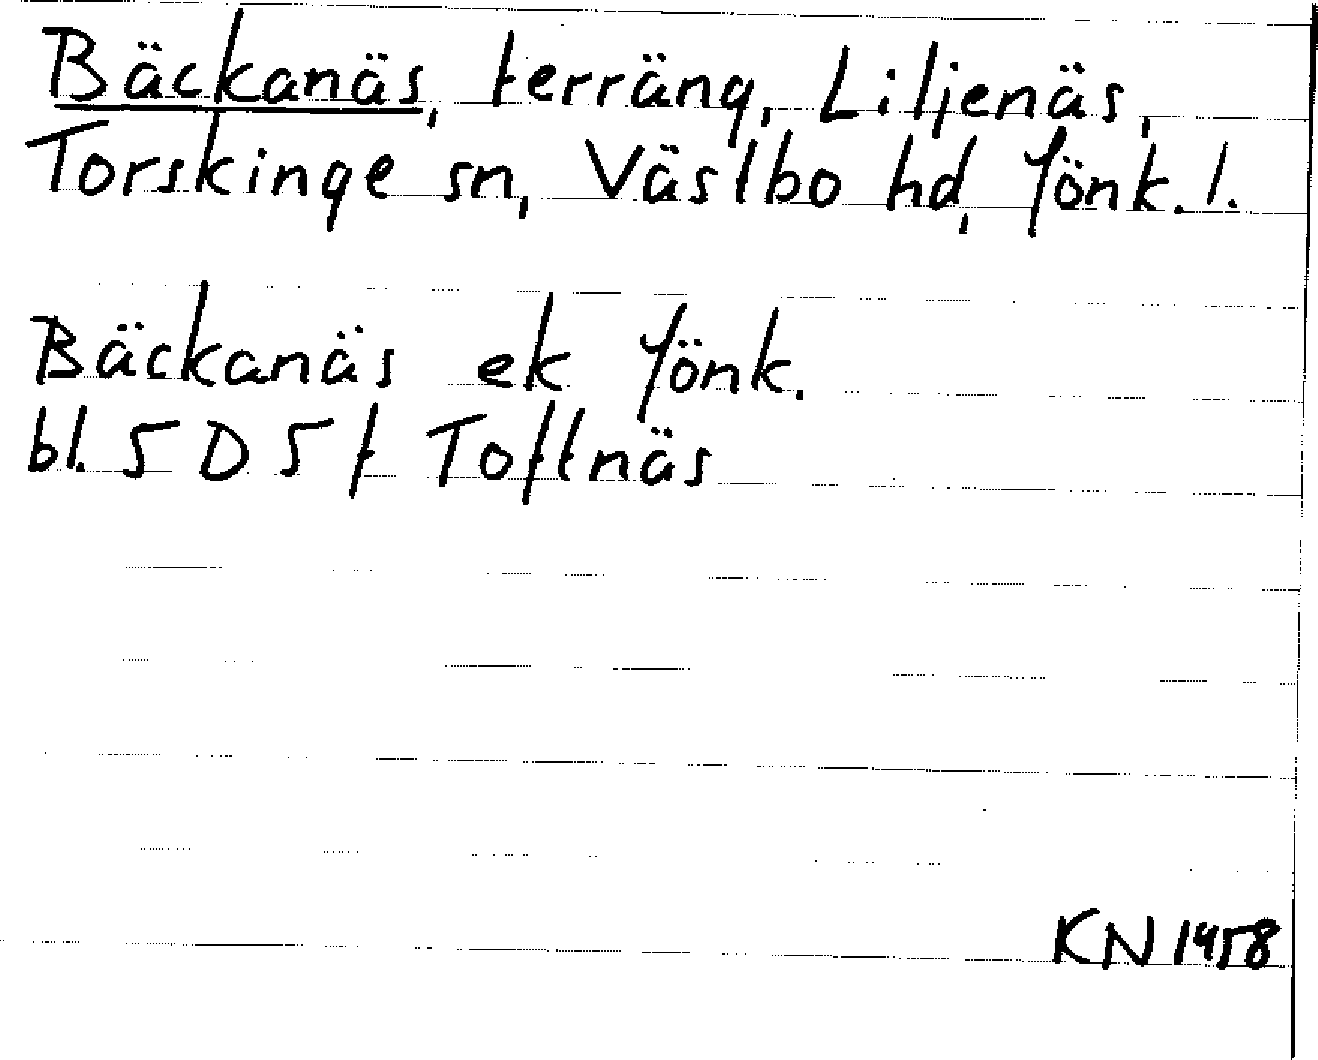 Bäckanäs, terräng, Liljenäs,
Torskinge sn, Västbo hd, Jönk. l.
Bäckanäs ek Jönk.
bl. 5 D 5 f Toftnäs
KN 1958